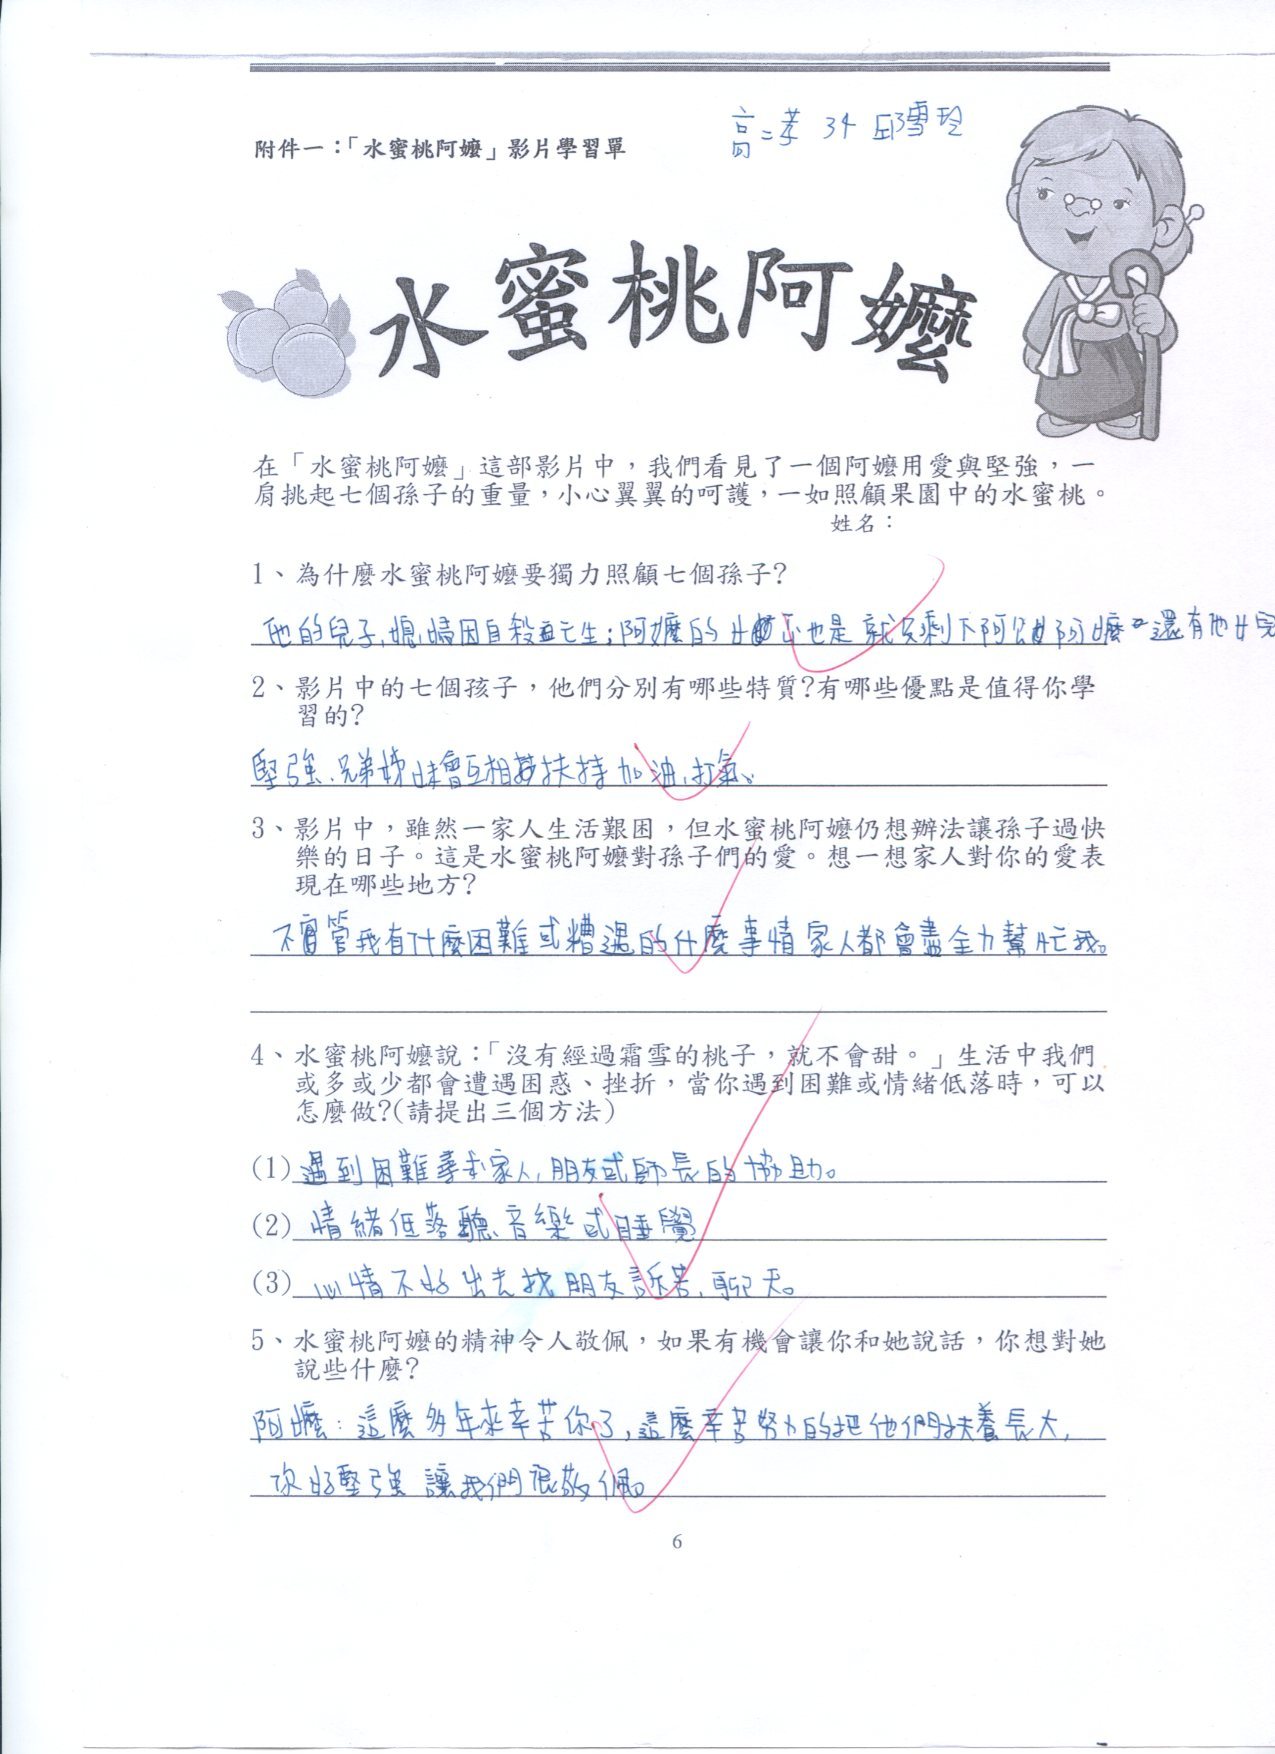 高二孝 34 邱雪玲
附件一：「水蜜桃阿嬤」影片學習單
水蜜桃阿嬤
在「水蜜桃阿嬤」這部影片中，我們看見了一個阿嬤用愛與堅強，一
肩挑起七個孫子的重量，小心翼翼的呵護，一如照顧果園中的水蜜桃。
姓名：
1、為什麼水蜜桃阿嬤要獨力照顧七個孫子?
他的兒子、媳婿因自殺亡生；阿嬤的 也是就只剩下阿公 阿嬤 還有他女兒
2、影片中的七個孩子，他們分別有哪些特質?有哪些優點是值得你學
習的?
堅強、兄弟姊妹會互相扶持加油、打氣。
3、影片中，雖然一家人生活艱困，但水蜜桃阿嬤仍想辦法讓孫子過快
樂的日子。這是水蜜桃阿嬤對孫子們的愛。想一想家人對你的愛表
現在哪些地方?
不管我有什麼困難或糟遇的什麼事情家人都會盡全力幫忙我。
4、水蜜桃阿嬤說：「沒有經過霜雪的桃子，就不會甜。」生活中我們
或多或少都會遭遇困惑、挫折，當你遇到困難或情緒低落時，可以
怎麼做?(請提出三個方法)
(1) 遇到困難尋求家人、朋友或師長的協助。
(2) 情緒低落聽音樂或睡覺
(3) 心情不好出去找朋友訴苦、聊天。
5、水蜜桃阿嬤的精神令人敬佩，如果有機會讓你和她說話，你想對她
說些什麼?
阿嬤：這麼多年來辛苦你了，這麼辛苦努力的把他們扶養長大，
你好堅強讓我們很敬佩。
6